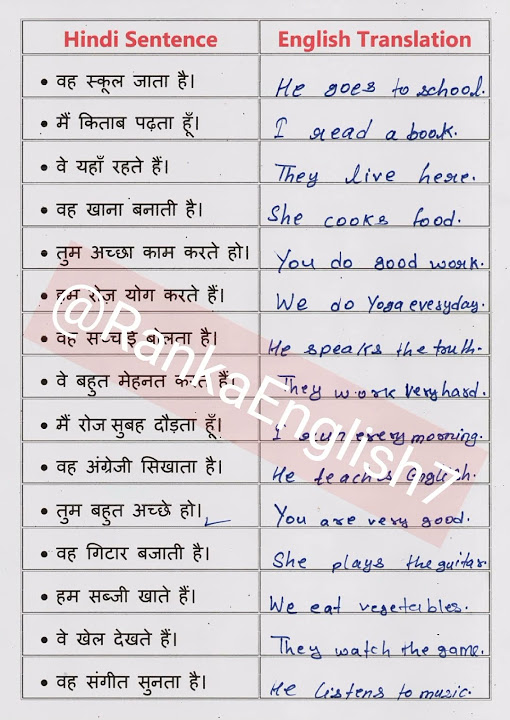 Hindi Sentence English Translation
• वह स्कूल जाता है। He goes to school.
• मैं किताब पढ़ता हूँ। I read a book.
• वे यहाँ रहते हैं। They live here.
• वह खाना बनाती है। She cooks food.
• तुम अच्छा काम करते हो। You do good work.
• हम रोज़ योग करते हैं। We do Yoga everyday.
• वह सच्चाई बोलता है। He speaks the truth.
• वे बहुत मेहनत करते हैं। They work very hard.
• मैं रोज सुबह दौड़ता हूँ। I run every morning.
• वह अंग्रेजी सिखाता है। He teaches English.
• तुम बहुत अच्छे हो। You are very good.
• वह गिटार बजाती है। She plays the guitar.
• हम सब्जी खाते हैं। We eat vegetables.
• वे खेल देखते हैं। They watch the game.
• वह संगीत सुनता है। He listens to music.
@RankaEnglish7